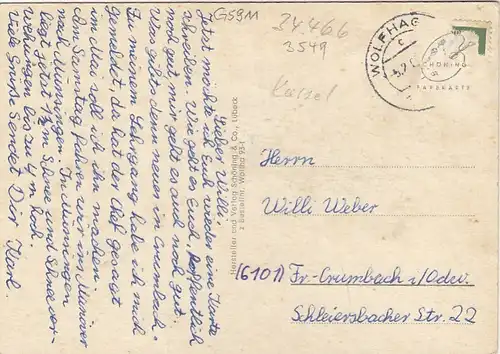 Lieber Willi,
Jetzt möchte ich Euch wieder eine Karte
schreiben. Wie geht es Euch, hoffentlich
noch gut, mir geht es auch noch gut.
Was gibts denn neues in Crumbach.
Zu meinem Lehrgang habe ich mich
gemeldet, da hat der Chef gesagt
im Mai soll ich ihn machen.
Am Samstag fahren wir ins Manöver
nach Münsingen. In Münsingen
liegt jetzt 1½ m Schnee und Schneever-
wehungen bis zu 4 m hoch.
Viele Grüße Sendet Dir Karl.
G5911
34.466
3549
Kassel
WOLFHAG
SCHÖNING
Hersteller und Verlag Schöning & Co., Lübeck
z Bestellnr. Woltha 93-1
Herrn
Willi Weber
(6101) Fr.-Crumbach i/Odw.
Schleiersbacher Str. 22